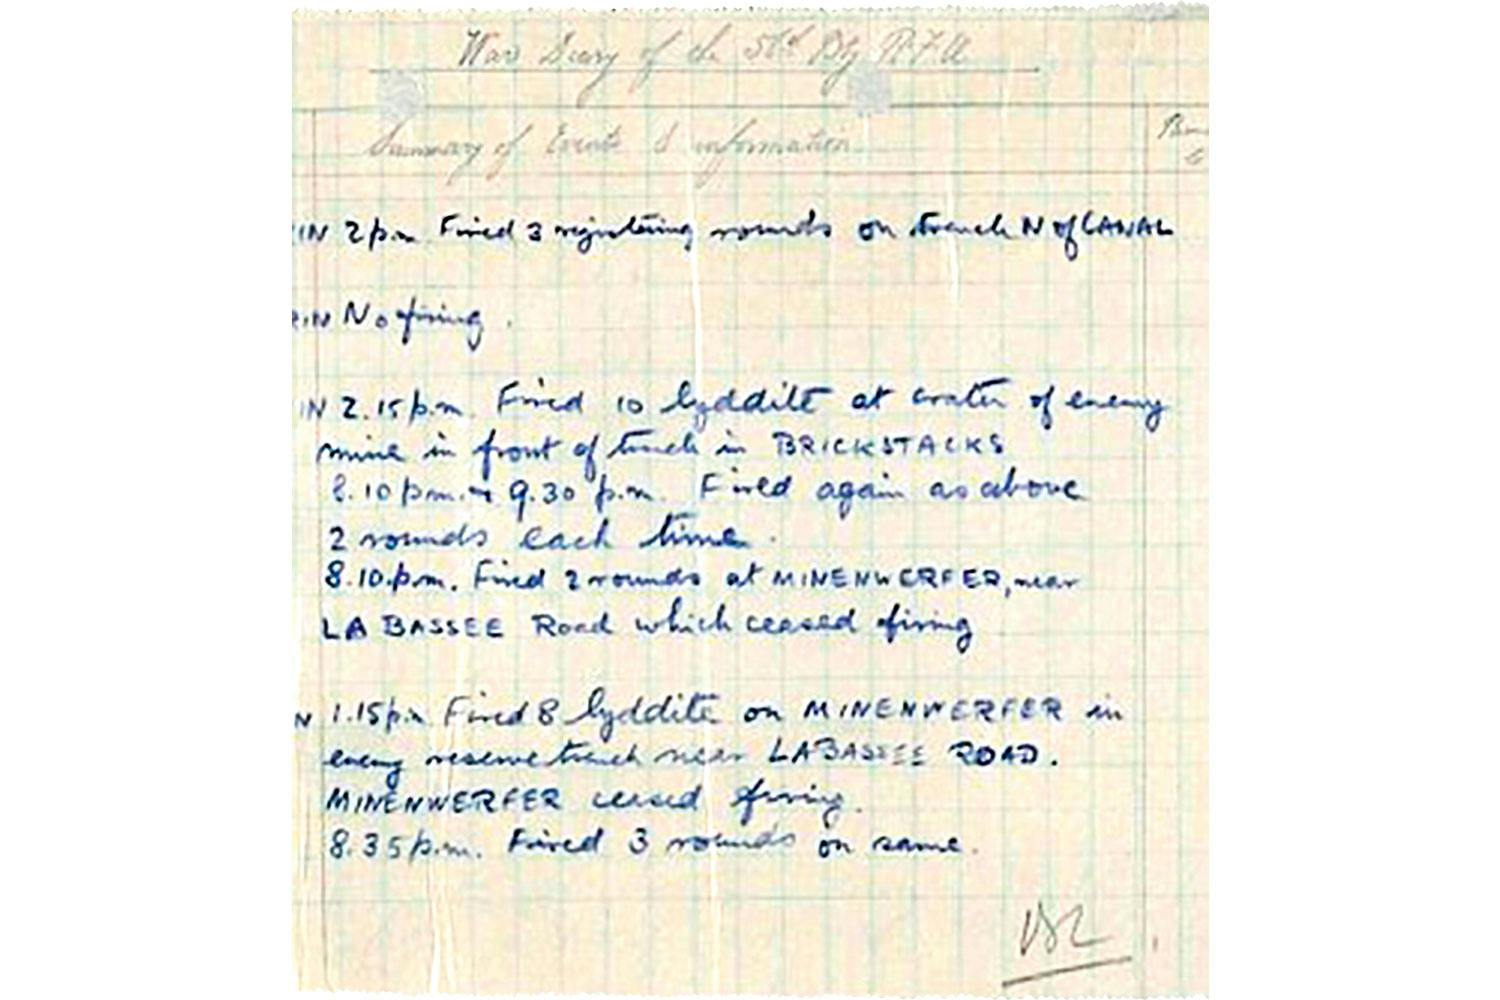 War Diary of the 56th Bty R.F.A
Summary of Events & information
IN 2 p.m. Fired 3 registering rounds on trench N of CANAL
RIN No firing.
IN 2.15 p.m. Fired 10 lyddite at crater of enemy
mine in front of trench in BRICKSTACKS
8.10 p.m. & 9.30 p.m. Fired again as above
2 rounds each time.
8.10 p.m. Fired 2 rounds at MINENWERFER, near
LA BASSEE Road which ceased firing
N 1.15 p.m Fired 8 lyddite on MINENWERFER in
enemy reserve trench near LA BASSEE ROAD.
MINENWERFER ceased firing.
8.35 p.m. Fired 3 rounds on same.